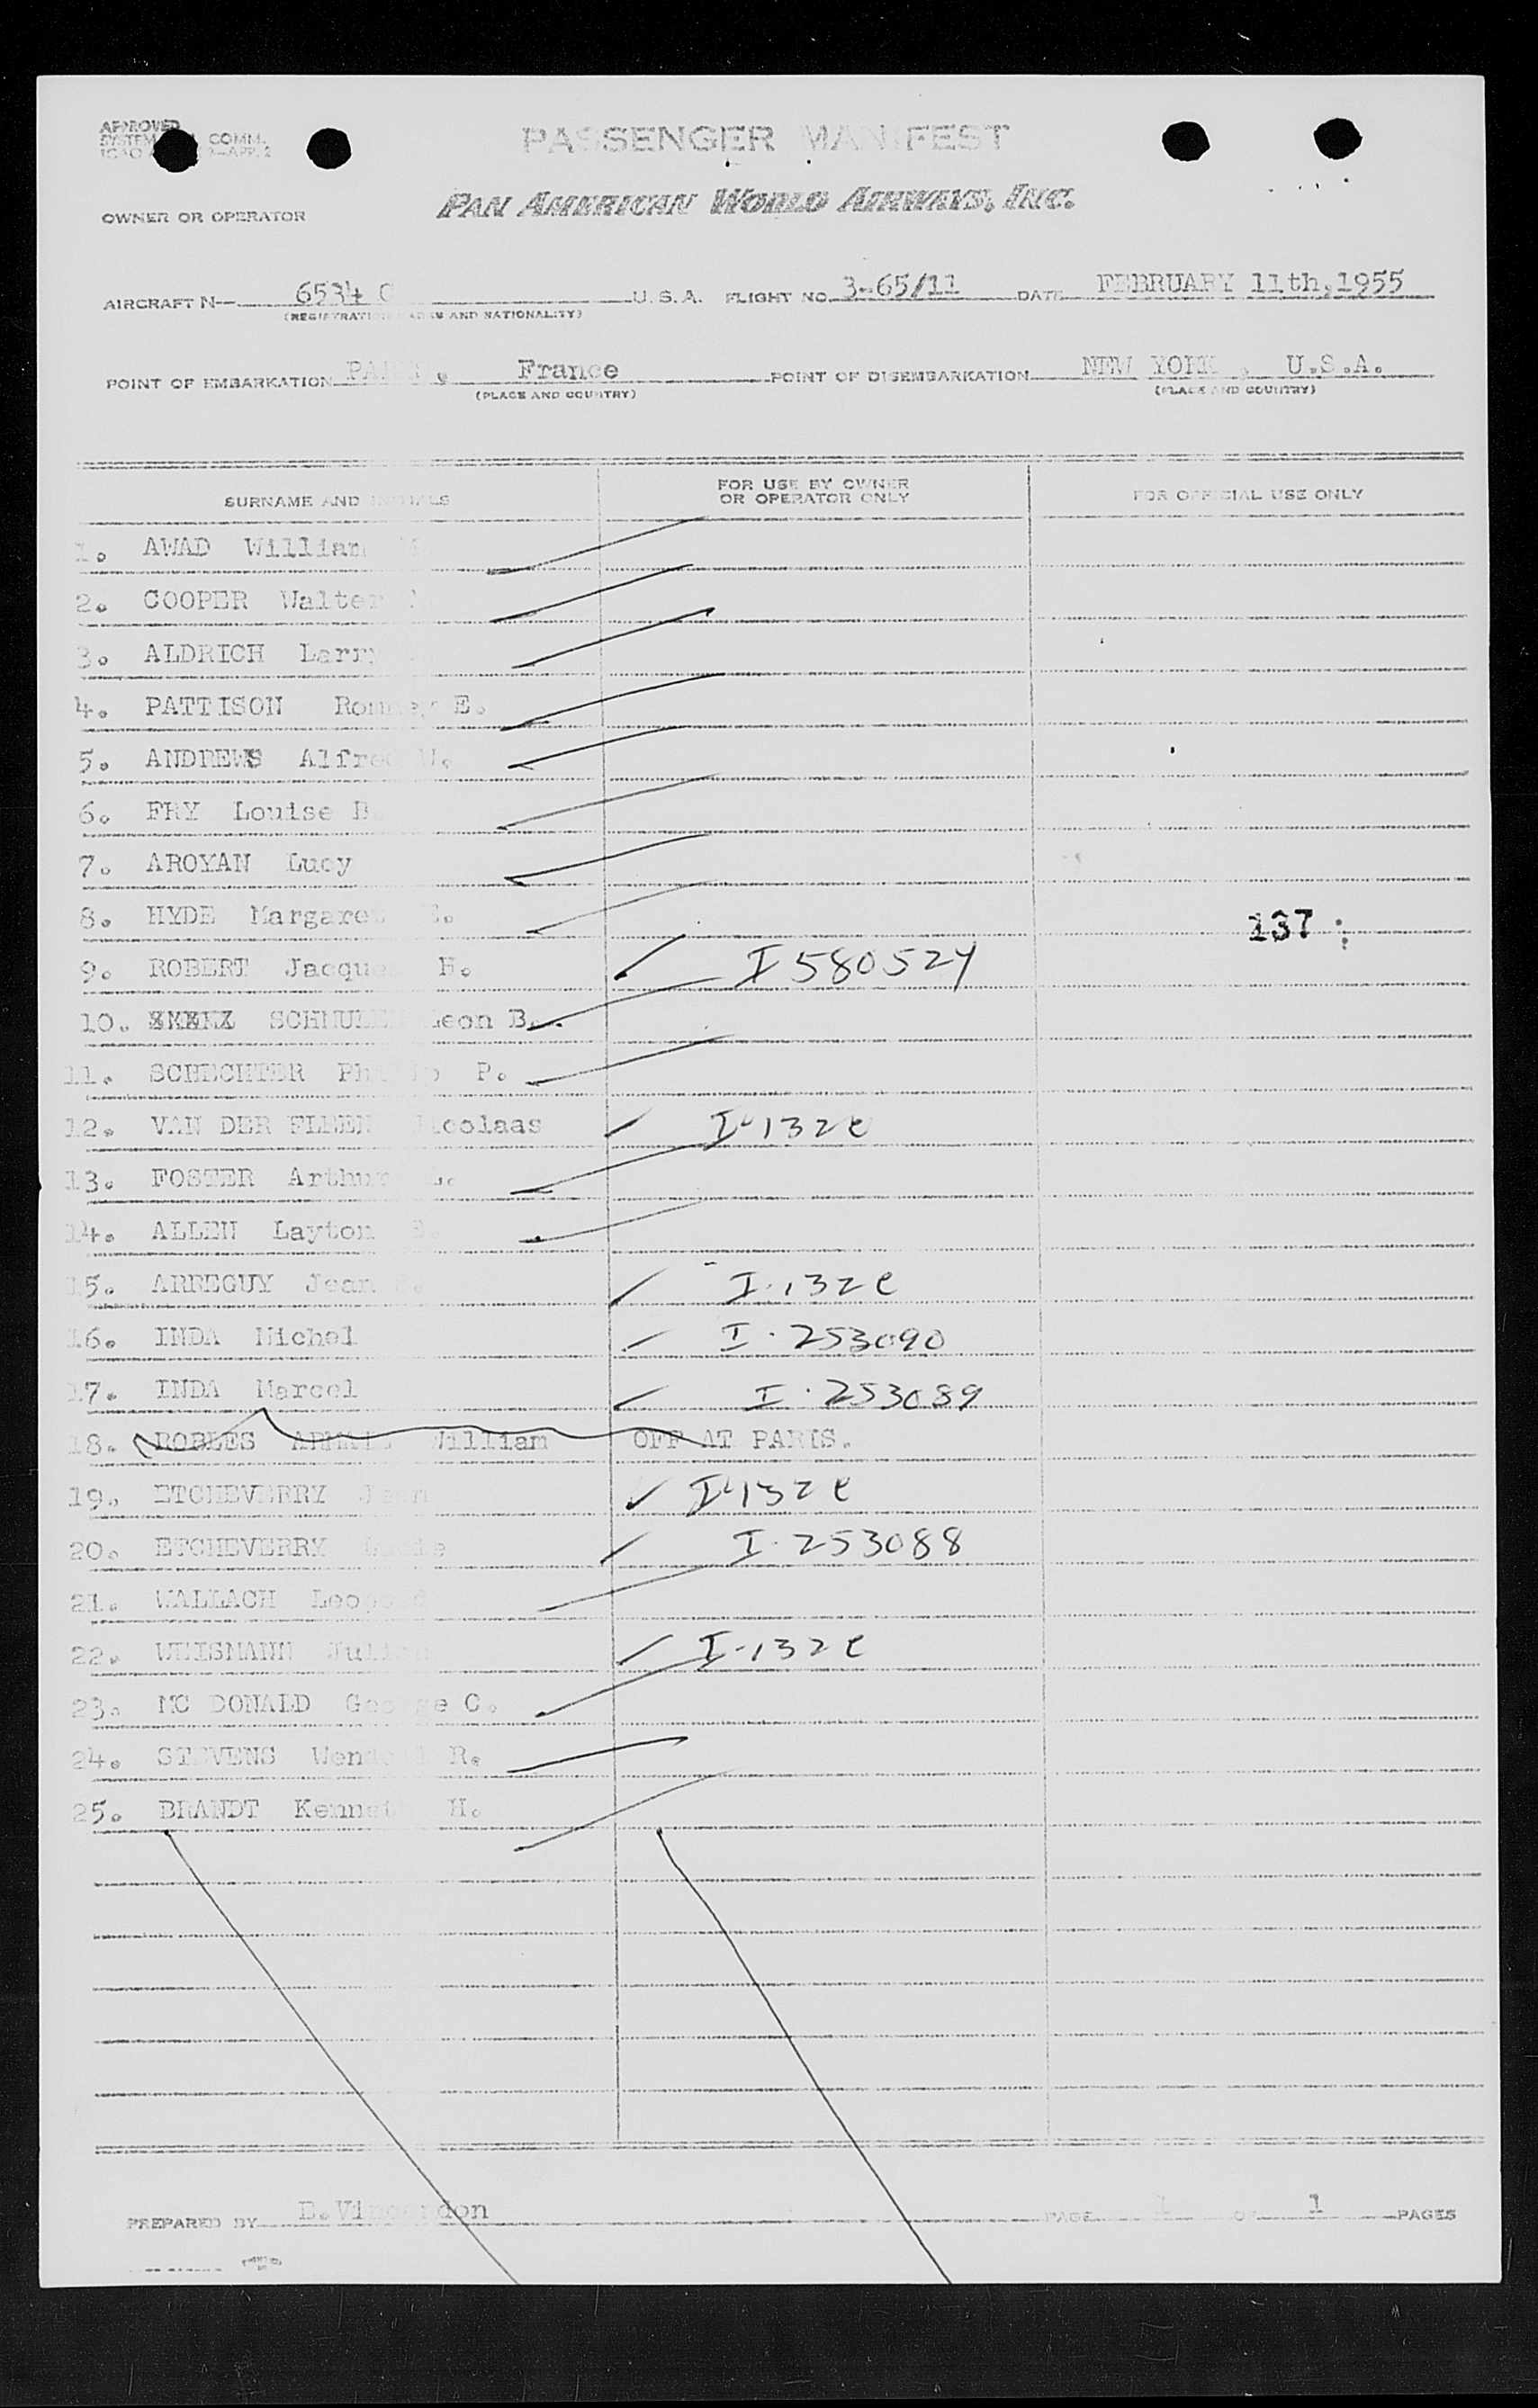 APPROVED
COMM.
PASSENGER MANIFEST
OWNER OR OPERATOR PAN AMERICAN WORLD AIRWAYS, INC.
AIRCRAFT N— 6534 C U. S. A. FLIGHT NO. 3-65/11 DATE FEBRUARY 11th,1955
AND NATIONALITY)
POINT OF EMBARKATION France POINT OF DISEMBARKATION NEW YORK, U.S.A.
(PLACE AND COUNTRY) (PLACE AND COUNTRY)
SURNAME AND INITIALS FOR USE BY OWNER OR OPERATOR ONLY FOR OFFICIAL USE ONLY
1. AWAD William
2. COOPER Walter
3. ALDRICH Larry
4. PATTISON E.
5. ANDREWS Alfred
6. FRY Louise B.
7. AROYAN Lucy
8. HYDE Margaret 137
9. ROBERT Jacques H. I 580524
10. Leon B.
11. SCHECHTER P.
12. VAN DER I-132e
13. FOSTER Arthur
14. ALLEN Layton
15. ARREGUY Jean I-132e
16. INDA Michel I-253090
17. INDA Marcel I-253089
18. ROBLES William OFF AT PARIS.
19. ETCHEVERRY I-132e
20. ETCHEVERRY I-253088
21. WALLACH Leopold
22. I-132e
23. MC DONALD George C.
24. STEVENS R.
25. BRANDT Kenneth H.
PREPARED BY PAGE 1 OF 1 PAGES